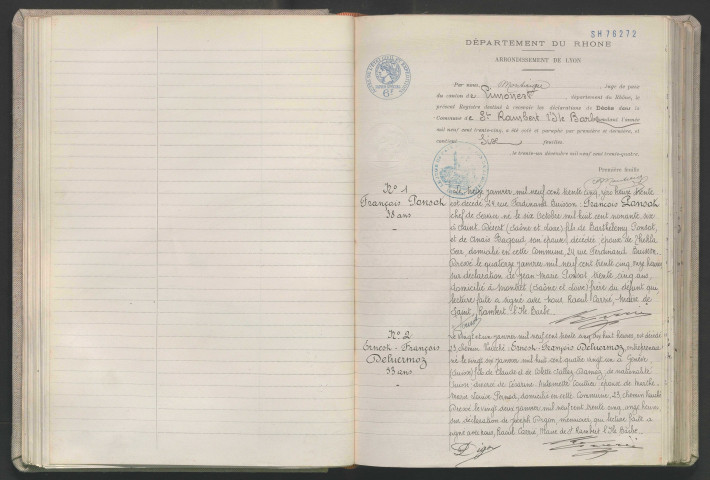 SH 76272
DÉPARTEMENT DU RHONE
ARRONDISSEMENT DE LYON
Par nous, juge de paix
du canton de Limonest département du Rhône, le
présent Registre destiné à recevoir les déclarations de Décès dans la
Commune de St Rambert l'Ile Barbe pendant l'année
mil neuf cent trente-cinq, a été coté et paraphé par première et dernière, et
contient feuilles
le trente-un décembre mil neuf cent trente-quatre.
Première feuille
6F
N° 1
François Ponsot
38 ans
Le treize janvier mil neuf cent trente cinq, heure trente
est décédé 24 rue Ferdinand Buisson François Ponsot
chef de service né le six Octobre mil huit cent nonante six
à Saint Désert (Saône et Loire) fils de Barthélemy Ponsot,
et de Anaïs son épouse, décédés, époux de
domicilié en cette Commune, 24 rue Ferdinand Buisson
Dressé le quatorze janvier mil neuf cent trente cinq, onze heures
sur déclaration de Jean-Marie Ponsot trente cinq ans,
domicilié à (Saône et Loire) frère du défunt qui
lecture faite a signé avec nous Raoul Carrié, Maire de
Saint Rambert l'Ile Barbe
N° 2
Ernest-François
Deluermoz
53 ans
Le vingt et un janvier mil neuf cent trente cinq huit heures, est décédé
23 chemin Ernest-François Deluermoz
né le vingt six janvier mil huit cent quatre vingt un à Genève
(Suisse) fils de Claude et de de nationalité
Suisse divorcé de Antoinette époux de Marthe
Maria Louise domicilié en cette Commune, 23 chemin
Dressé le vingt deux janvier mil neuf cent trente cinq, onze heures
sur déclaration de Joseph menuisier, qui lecture faite a
signé avec nous, Raoul Carrié, Maire de St Rambert l'Ile Barbe